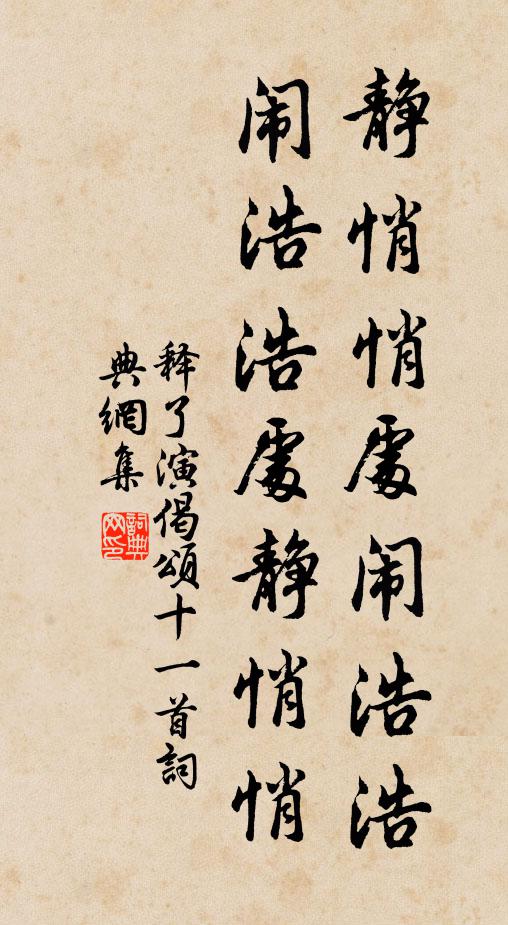 静悄悄處闹浩浩
闹浩浩處静悄悄
释了演偈頌十一首詞
典網集
詞典
网印